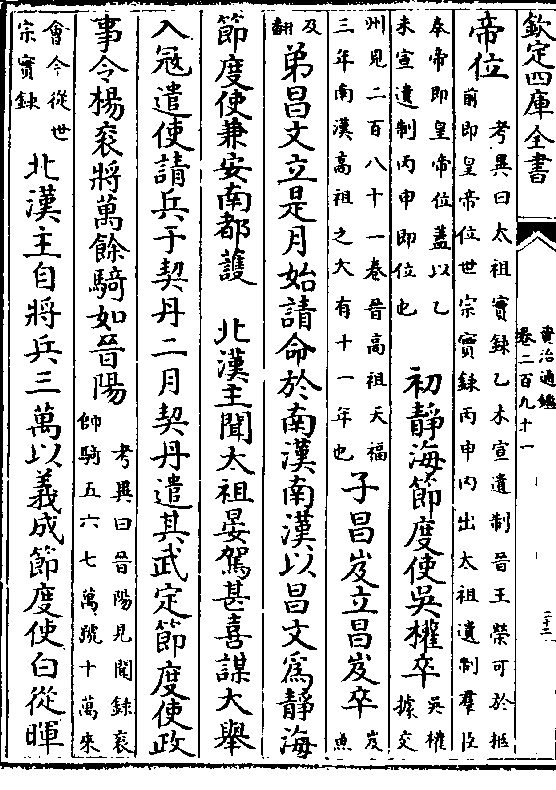 欽定四庫全書
資治通鑑
卷二百九十一
二十三
帝位
考異曰太祖實録乙未宣遺制晉王榮可於柩
前即皇帝位世宗實録丙申内出太祖遺制羣臣
奉帝即皇帝位蓋以乙
未宣遺制丙申即位也
初靜海節度使吳權卒
吳權
據交
州見二百八十一卷晉高祖天福
三年南漢高祖之大有十一年也
子昌岌立昌岌卒
岌
魚
及
翻
弟昌文立是月始請命於南漢南漢以昌文爲靜海
節度使兼安南都護　北漢主聞太祖晏駕甚喜謀大舉
入冦遣使請兵于契丹二月契丹遣其武定節度使政
事令楊衮將萬餘騎如晉陽
考異曰晉陽見聞録衮
帥騎五六七萬號十萬來
會今從世
宗實録
北漢主自將兵三萬以義成節度使白從暉